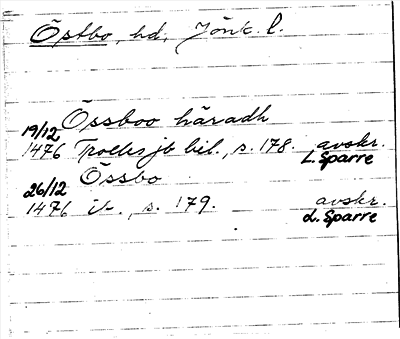 Östbo, hd, Jönk. l.
Össboo häradh
19/12
1476 Trolles jb bil., s. 178. avskr.
L. Sparre
Össbo
26/12
1476 ib., s. 179. avskr.
L. Sparre